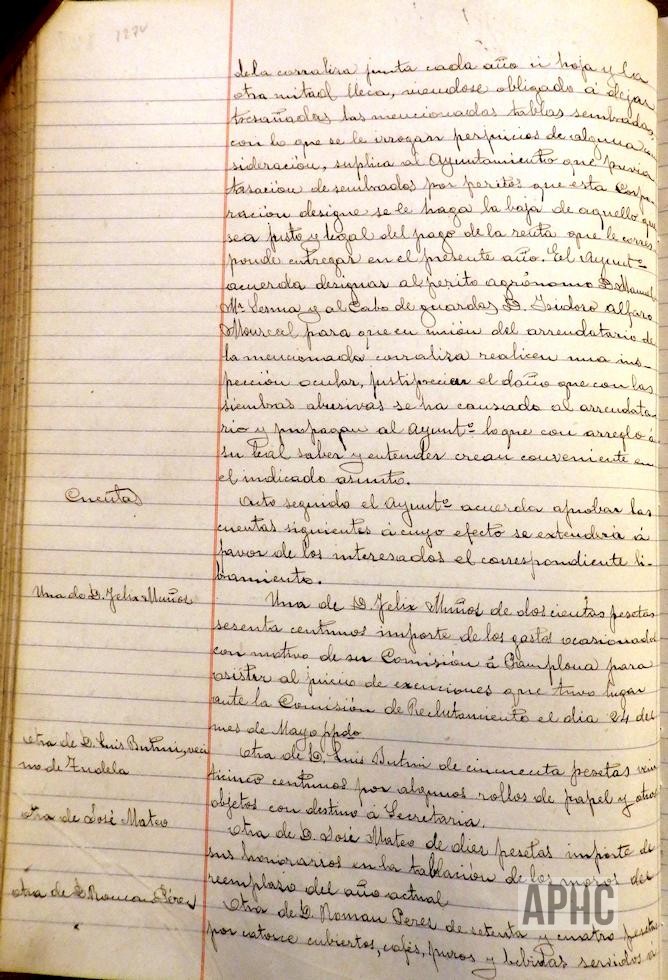 1274
de la corraliza junta cada año ú hoja y la
otra mitad lleca, viendose obligado á dejar
las mencionadas tablas sembradas,
con lo que se le irrogan perjuicios de alguna con
sideración, suplica al Ayuntamiento que previa
tasación de sembrados por peritos que esta Corpo
ración designe se le haga la baja de aquello que
sea justo y legal del pago de la renta que le corres
ponde entregar en el presente año. El Ayuntº
acuerda designar al perito agrónomo D. Manuel
Mª Lesma y al Cabo de guardas D. Isidoro Alfaro
para que en unión del arrendatario de
la mencionada corraliza realicen una ins-
pección ocular, justiprecien el daño que con las
siembras abusivas se ha causado al arrendata
rio y propongan al Ayuntº lo que con arreglo á
su leal saber y entender crean conveniente en
el indicado asunto.
Cuentas
Acto seguido el Ayuntº acuerda aprobar las
cuentas siguientes á cuyo efecto se extenderá á
favor de los interesados el correspondiente li-
bramiento.
Una de D. Felix Muños
Una de D. Felix Muños de doscientas pesetas
sesenta centimos importe de los gastos ocasionados
con motivo de su Comisión á Pamplona para
asistir al juicio de exenciones que tuvo lugar
ante la Comisión de Reclutamiento el dia 24 del
mes de Mayo ppdo
Otra de D. Luis Butini, veci
no de Tudela
Otra de D. Luis Butini de cincuenta pesetas vein
ticinco centimos por algunos rollos de papel y otros
objetos con destino á Secretaria.
Otra de José Mateo
Otra de D. José Mateo de diez pesetas importe de
sus honorarios en la tallación de los mozos del
reemplazo del año actual
Otra de D. Roman Péres
Otra de D. Roman Peres de setenta y cuatro pesetas
por catorce cubiertos, cafés, puros y bebidas servidos á
APHC